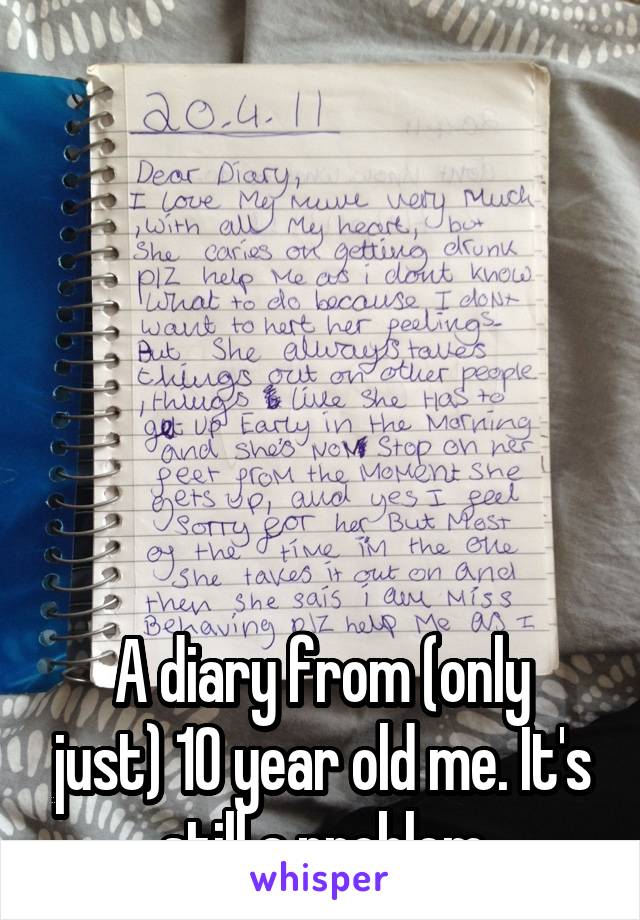 20.4.11
Dear Diary,
I love My mume very Much
,with all My heart, but
She caries on getting drunk
plz help Me as i dont know
What to do because I dont
want to hert her feelings.
But She always takes
things out on other people
,things like She Has to
get up Early in the Morning
and she's NoN Stop on her
feet from the MoMeNt She
gets up, and yes I feel
Sorry for her But Most
of the time i'm the one
she takes it out on and
then she sais i am Miss
Behaving plz help Me as I
A diary from (only
just) 10 year old me. It's
still a problem
whisper